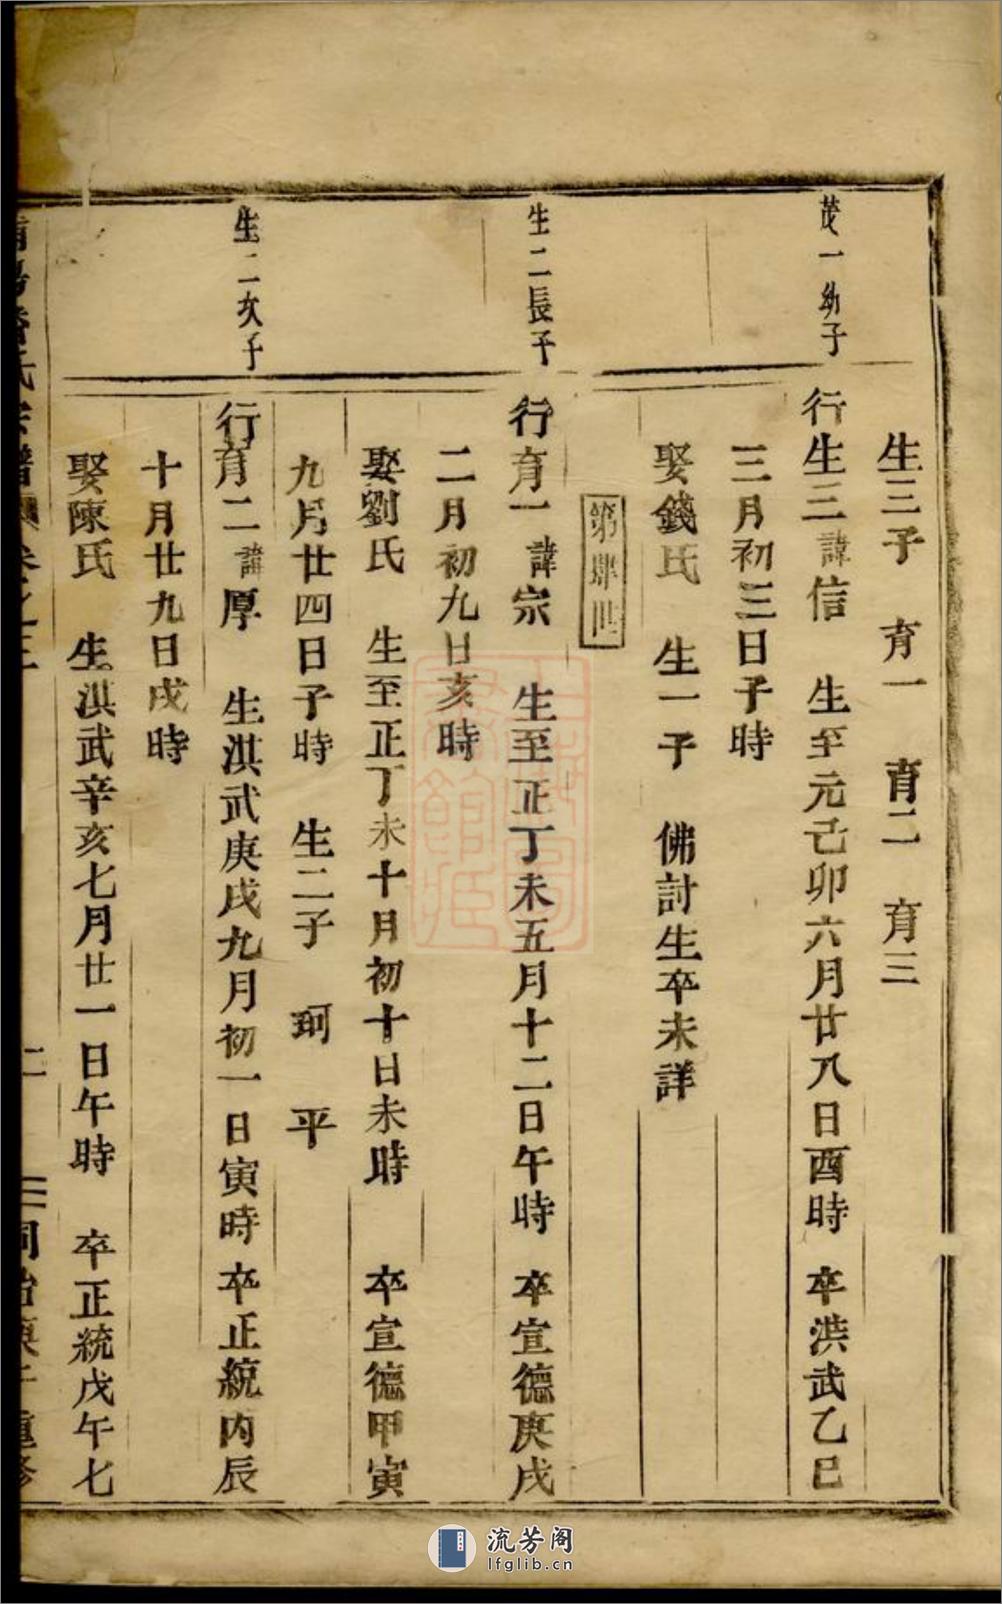 生三子 育一 育二 育三
茂一幼子
行生三諱信 生至元己卯六月廿八日酉時 卒洪武乙巳
三月初三日子時
娶錢氏 生一子 佛討生卒未詳
第 世
生二長子
行育一諱宗 生至正丁未五月十二日午時 卒宣德庚戌
二月初九日亥時
娶劉氏 生至正丁未十月初十日未時 卒宣德甲寅
九月廿四日子時 生二子 珂 平
生二次子
行育二諱厚 生淇武庚戌九月初一日寅時 卒正統丙辰
十月廿九日戌時
娶陳氏 生淇武辛亥七月廿一日午時 卒正統戊午七
氏宗譜 卷之三 二 同治 重修
流芳阁
lfglib.cn